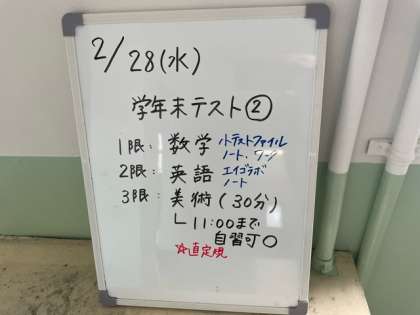 2/28(水)
学年末テスト②
1限: 数学 小テストファイル
ノート、ワーク
2限: 英語 エイゴラボ
ノート
3限: 美術(30分)
└ 11:00まで
自習可○
☆直定規